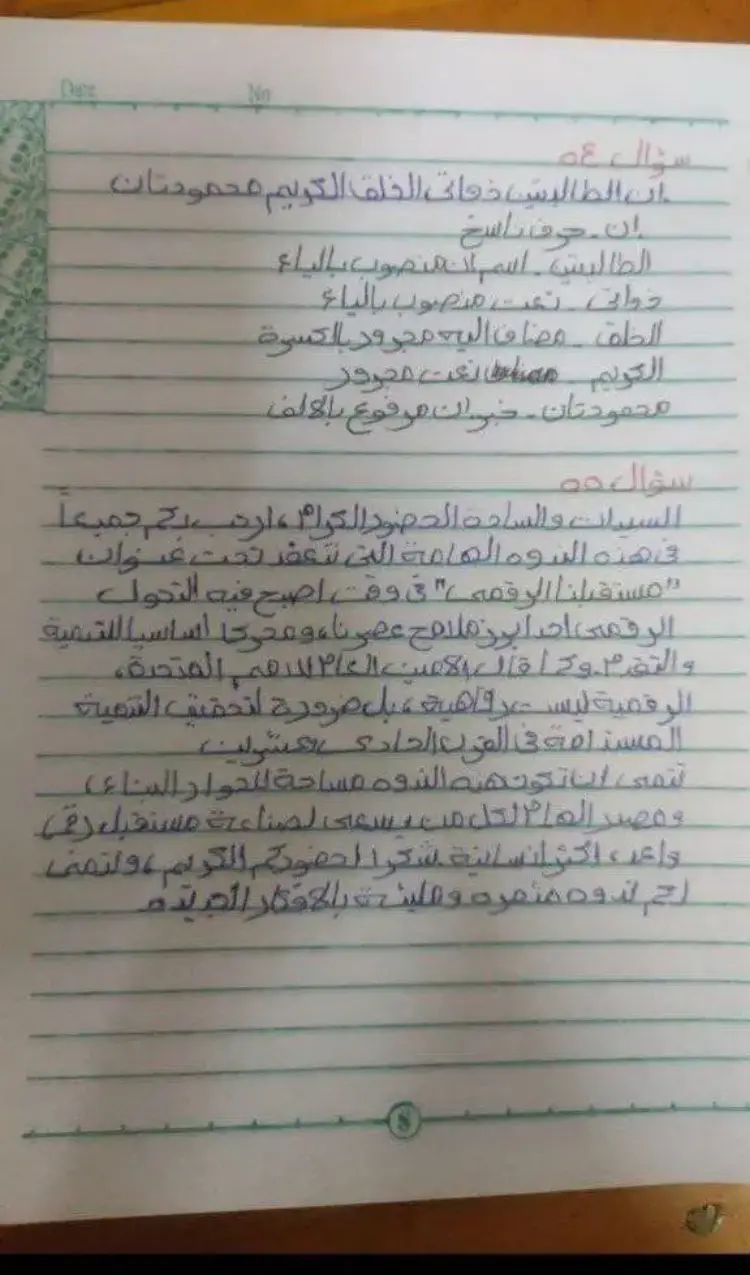 Date No
سؤال ٥٤
إن الطالبتين ذواتى الخلق الكريم محمودتان
إن - حرف ناسخ
الطالبتين - اسم إن منصوب بالياء
ذواتى - نعت منصوب بالياء
الخلق - مضاف اليه مجرور بالكسرة
الكريم - نعت مجرور
محمودتان - خبر ان مرفوع بالالف
سؤال ٥٥
السيدات والسادة الحضور الكرام، ارحب بكم جميعاً
فى هذه الندوه الهامة التى تنعقد تحت عنوان
"مستقبلنا الرقمى" فى وقت اصبح فيه التحول
الرقمى احد ابرز ملامح عصرنا، ومحركا اساسيا للتنمية
والتقدم. وكما قال الامين العام للامم المتحدة،
الرقمية ليست رفاهية، بل ضرورة لتحقيق التنمية
المستدامة فى القرن الحادى وعشرين
نتمى ان تكون هذه الندوه مساحة للحوار البناء،
ومصدر الهام لكل من يسعى لصناعة مستقبل رقمى
واعد، اكثر انسانية شكرا لحضوركم الكريم، ولنتمنى
لكم ندوه مثمره ومليئة بالافكار الجديده
8